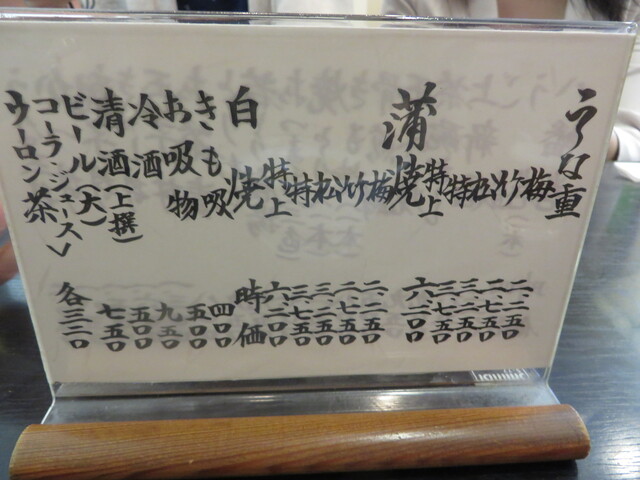 うな重
梅 二、二五〇
竹 二、七五〇
松 三、二五〇
特 三、七五〇
特上 六、二〇〇
蒲焼
梅 二、二五〇
竹 二、七五〇
松 三、二五〇
特 三、七五〇
特上 六、二〇〇
白焼 時価
きも吸 四〇〇
お吸物 五〇〇
冷酒 九五〇
清酒(上撰) 五〇〇
ビール(大) 七五〇
コーラ・ジュース
ウーロン茶 各三二〇